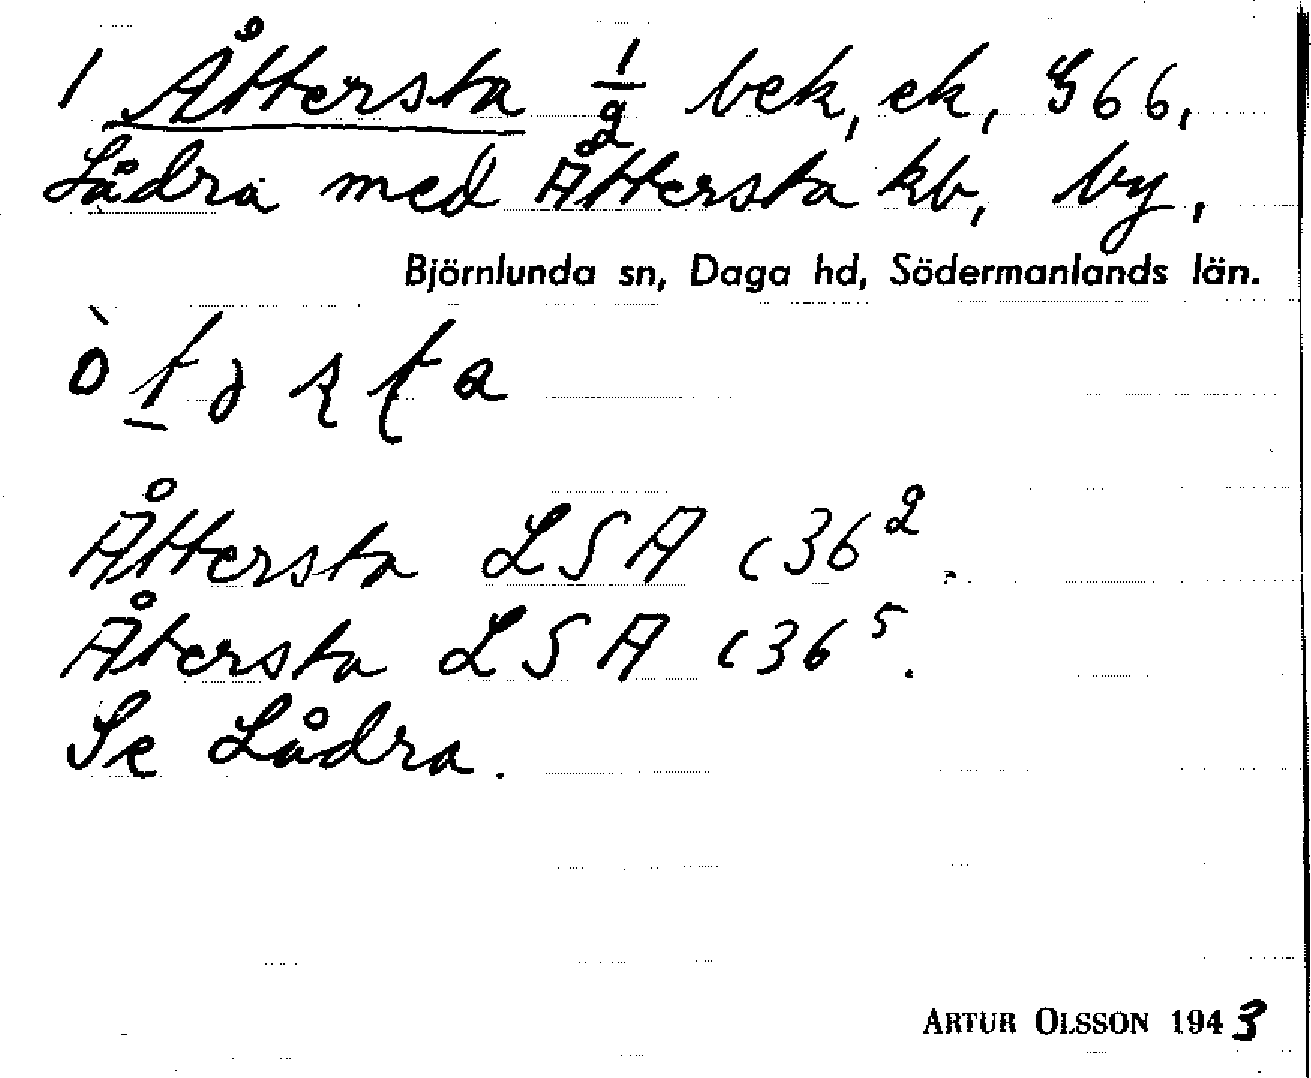 1 Åttersta 1/2 bek, ek, G66,
Lådra med Åttersta kb, by,
Björnlunda sn, Daga hd, Södermanlands län.
Åttersta LSA c36²
Återsta LSA c36⁵.
Se Lådra.
ARTUR OLSSON 1943